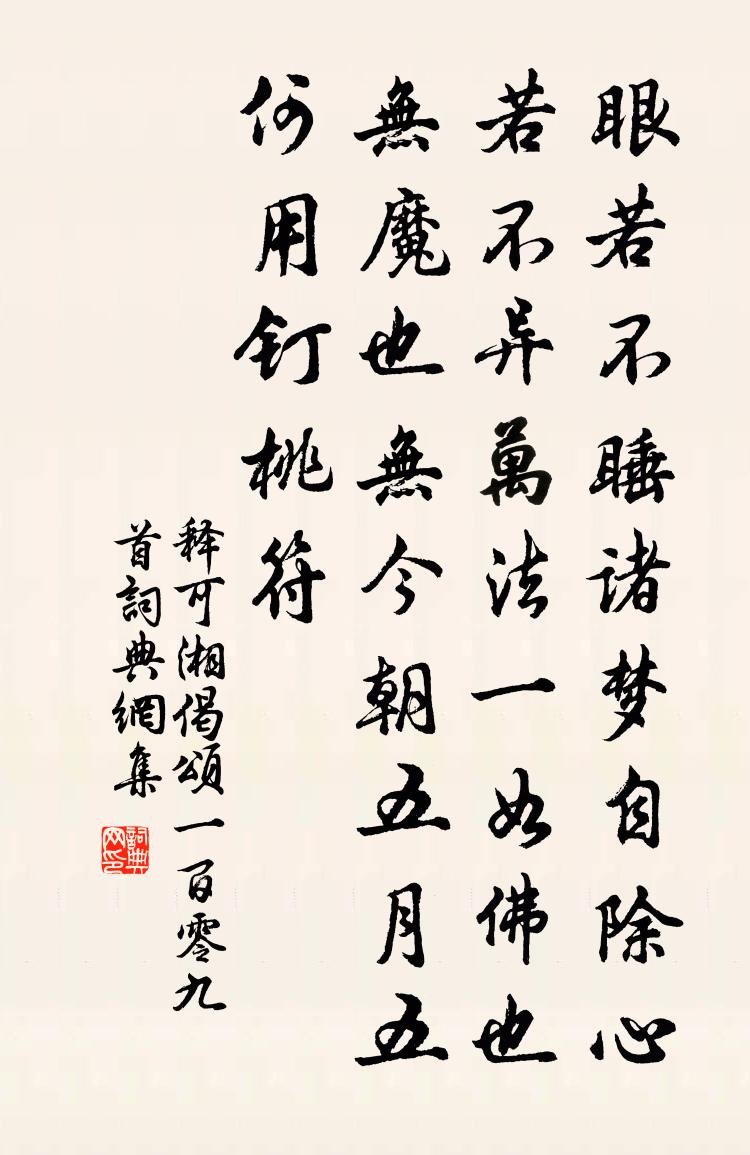 眼若不睡诸梦自除心
若不异萬法一如佛也
無魔也無今朝五月五
何用钉桃符
释可湘偈頌一百零九
首詞典網集
詞典
网印